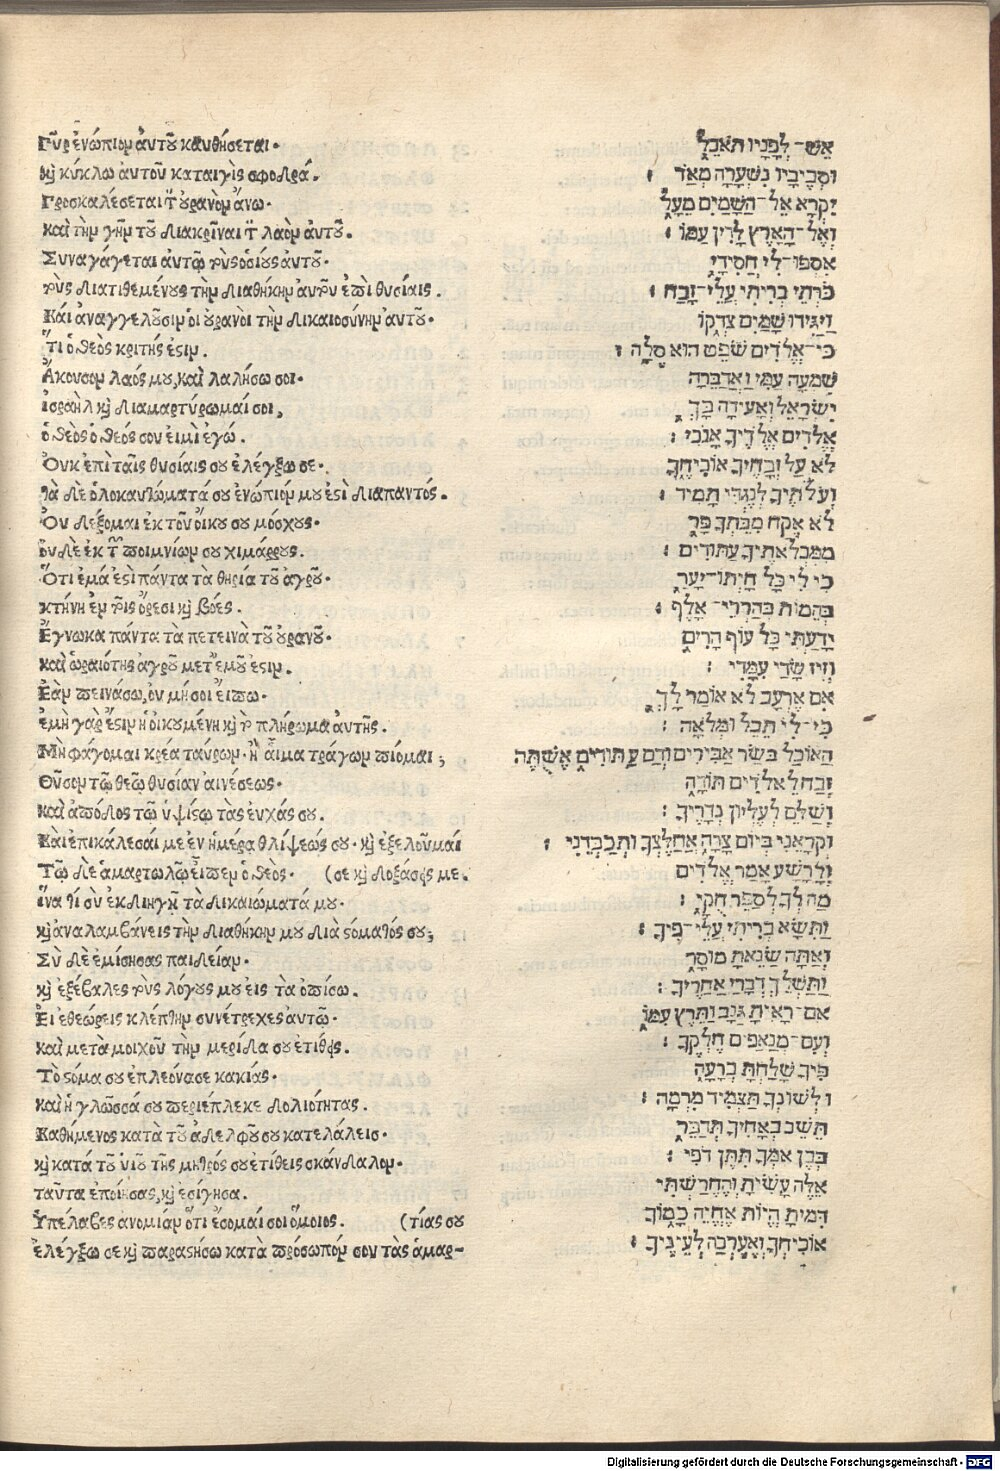 Πῦρ ἐνώπιον ἀυτοῦ καυθήσεται.
κỳ κύκλω ἀυτοῦ καταιγὶς σφοδρά.
Προσκαλέσεται τ̀ ὀυρανὸν ἄνω.
καὶ τὴν γῆν τοῦ διακρῖναι τ̀ λαὸν ἀυτοῦ.
Συναγάγεται ἀυτῶ τοὺς ὁσίους ἀυτοῦ.
τοὺς διατιθεμένους τὴν διαθήκην ἀυτοῦ ἐπὶ θυσίαις.
Καὶ ἀναγγελοῦσιν οἱ ὀυρανοὶ τὴν δικαιοσύνην ἀυτοῦ.
Ὅτι ὁ θεὸς κριτής ἐστιν.
Ἄκουσον λαός μου, καὶ λαλήσω σοι.
ἰσραὴλ κỳ διαμαρτύρωμαί σοι,
ὁ θεὸς ὁ θεός σου εἰμὶ ἐγώ.
Ὀυκ ἐπὶ ταῖς θυσίαις σου ἐλέγξω σε.
τὰ δὲ ὁλοκαυτώματά σου ἐνώπιόν μου ἐστὶ διαπαντός.
Ὀυ δέξομαι ἐκ τοῦ ὄικου σου μόσχους.
ὀυδὲ ἐκ τῶν ποιμνίων σου χιμάρρους.
Ὅτι ἐμά ἐστι πάντα τὰ θηρία τοῦ ἀγροῦ.
κτήνη ἐν τοῖς ὄρεσι κỳ βόες.
Ἔγνωκα πάντα τὰ πετεινὰ τοῦ ὀυρανοῦ.
καὶ ὡραιότης ἀγροῦ μετ' ἐμοῦ ἐστιν.
Ἐὰν πεινάσω, ὀυ μή σοι ἔιπω.
ἐμὴ γάρ ἐστιν ἡ ὀικουμένη κỳ τὸ πλήρωμα ἀυτῆς.
Μὴ φάγομαι κρέα ταύρων. ἢ ἇιμα τράγων πίομαι;
Θῦσον τῶ θεῶ θυσίαν ἀινέσεως.
καὶ ἀπόδος τῶ ὑψίστω τὰς ἐυχάς σου.
Καὶ ἐπικάλεσαί με ἐν ἡμέρα θλίψεώς σου. κỳ ἐξελοῦμαί
Τῶ δὲ ἁμαρτωλῶ ἔιπεν ὁ θεός. (σε κỳ δοξάσεις με.
ἵνα τί σὺ ἐκδιηγῆ τὰ δικαιώματά μου.
κỳ ἀναλαμβάνεις τὴν διαθήκην μου διὰ στόματός σου;
Σὺ δὲ ἐμίσησας παιδείαν.
κỳ ἐξέβαλες τοὺς λόγους μου εἰς τὰ ὀπίσω.
Ἐι ἐθεώρεις κλέπτην συνέτρεχες ἀυτῶ.
καὶ μετὰ μοιχοῦ τὴν μερίδα σου ἐτίθεις.
Τὸ στόμα σου ἐπλεόνασε κακίας.
καὶ ἡ γλῶσσά σου περιέπλεκε δολιότητας.
Καθήμενος κατὰ τοῦ ἀδελφοῦ σου κατελάλεις.
κỳ κατὰ τοῦ ὑιοῦ τῆς μητρός σου ἐτίθεις σκάνδαλον.
ταῦτα ἐποίησας, κỳ ἐσίγησα.
Ὑπέλαβες ἀνομίαν ὅτι ἔσομαί σοι ὅμοιος. (τίας σου
ἐλέγξω σε κỳ παραστήσω κατὰ πρόσωπόν σου τὰς ἁμαρ-
אֵשׁ־לְפָנָיו תֹּאכֵל
וּסְבִיבָיו נִשְׂעֲרָה מְאֹד :
יִקְרָא אֶל־הַשָּׁמַיִם מֵעָל
וְאֶל־הָאָרֶץ לָדִין עַמּוֹ :
אִסְפוּ־לִי חֲסִידָי
כֹּרְתֵי בְרִיתִי עֲלֵי־זָבַח :
וַיַּגִּידוּ שָׁמַיִם צִדְקוֹ
כִּי־אֱלֹדִים שֹׁפֵט הוּא סֶלָה :
שִׁמְעָה עַמִּי וַאֲדַבֵּרָה
יִשְׂרָאֵל וְאָעִידָה בָּךְ
אֱלֹדִים אֱלֹדֶיךָ אָנֹכִי :
לֹא עַל זְבָחֶיךָ אוֹכִיחֶךָ
וְעֹלֹתֶיךָ לְנֶגְדִּי תָמִיד :
לֹא אֶקַּח מִבֵּתְךָ פָר
מִמִּכְלְאֹתֶיךָ עַתּוּדִים :
כִּי לִי כָּל חַיְתוֹ־יָעַר
בְּהֵמוֹת בְּהַרְרֵי־אָלֶף :
יָדַעְתִּי כָּל עוֹף הָרִים
וְזִיז שָׂדַי עִמָּדִי :
אִם אֶרְעַב לֹא אוֹמַר לָךְ
כִּי־לִי תֵבֵל וּמְלֹאָהּ :
הַאוֹכַל בְּשַׂר אַבִּירִים וְדַם עַתּוּדִים אֶשְׁתֶּה
זְבַח לֵאלֹדִים תּוֹדָה
וְשַׁלֵּם לְעֶלְיוֹן נְדָרֶיךָ :
וּקְרָאֵנִי בְּיוֹם צָרָה אֲחַלֶּצְךָ וּתְכַבְּדֵנִי :
וְלָרָשָׁע אָמַר אֱלֹדִים
מַה לְּךָ לְסַפֵּר חֻקָּי :
וַתִּשָּׂא בְרִיתִי עֲלֵי־פִיךָ :
וְאַתָּה שָׂנֵאתָ מוּסָר
וַתַּשְׁלֵךְ דְּבָרַי אַחֲרֶיךָ :
אִם־רָאִיתָ גַנָּב וַתִּרֶץ עִמּוֹ
וְעִם־מְנָאֲפִים חֶלְקֶךָ :
פִּיךָ שָׁלַחְתָּ בְרָעָה
וּלְשׁוֹנְךָ תַּצְמִיד מִרְמָה :
תֵּשֵׁב בְּאָחִיךָ תְדַבֵּר
בְּבֶן אִמְּךָ תִּתֶּן דֹּפִי :
אֵלֶּה עָשִׂיתָ וְהֶחֱרַשְׁתִּי
דִּמִּיתָ הֱיוֹת אֶהְיֶה כָמוֹךָ
אוֹכִיחֲךָ וְאֶעֶרְכָה לְעֵינֶיךָ :
Digitalisierung gefördert durch die Deutsche Forschungsgemeinschaft - DFG